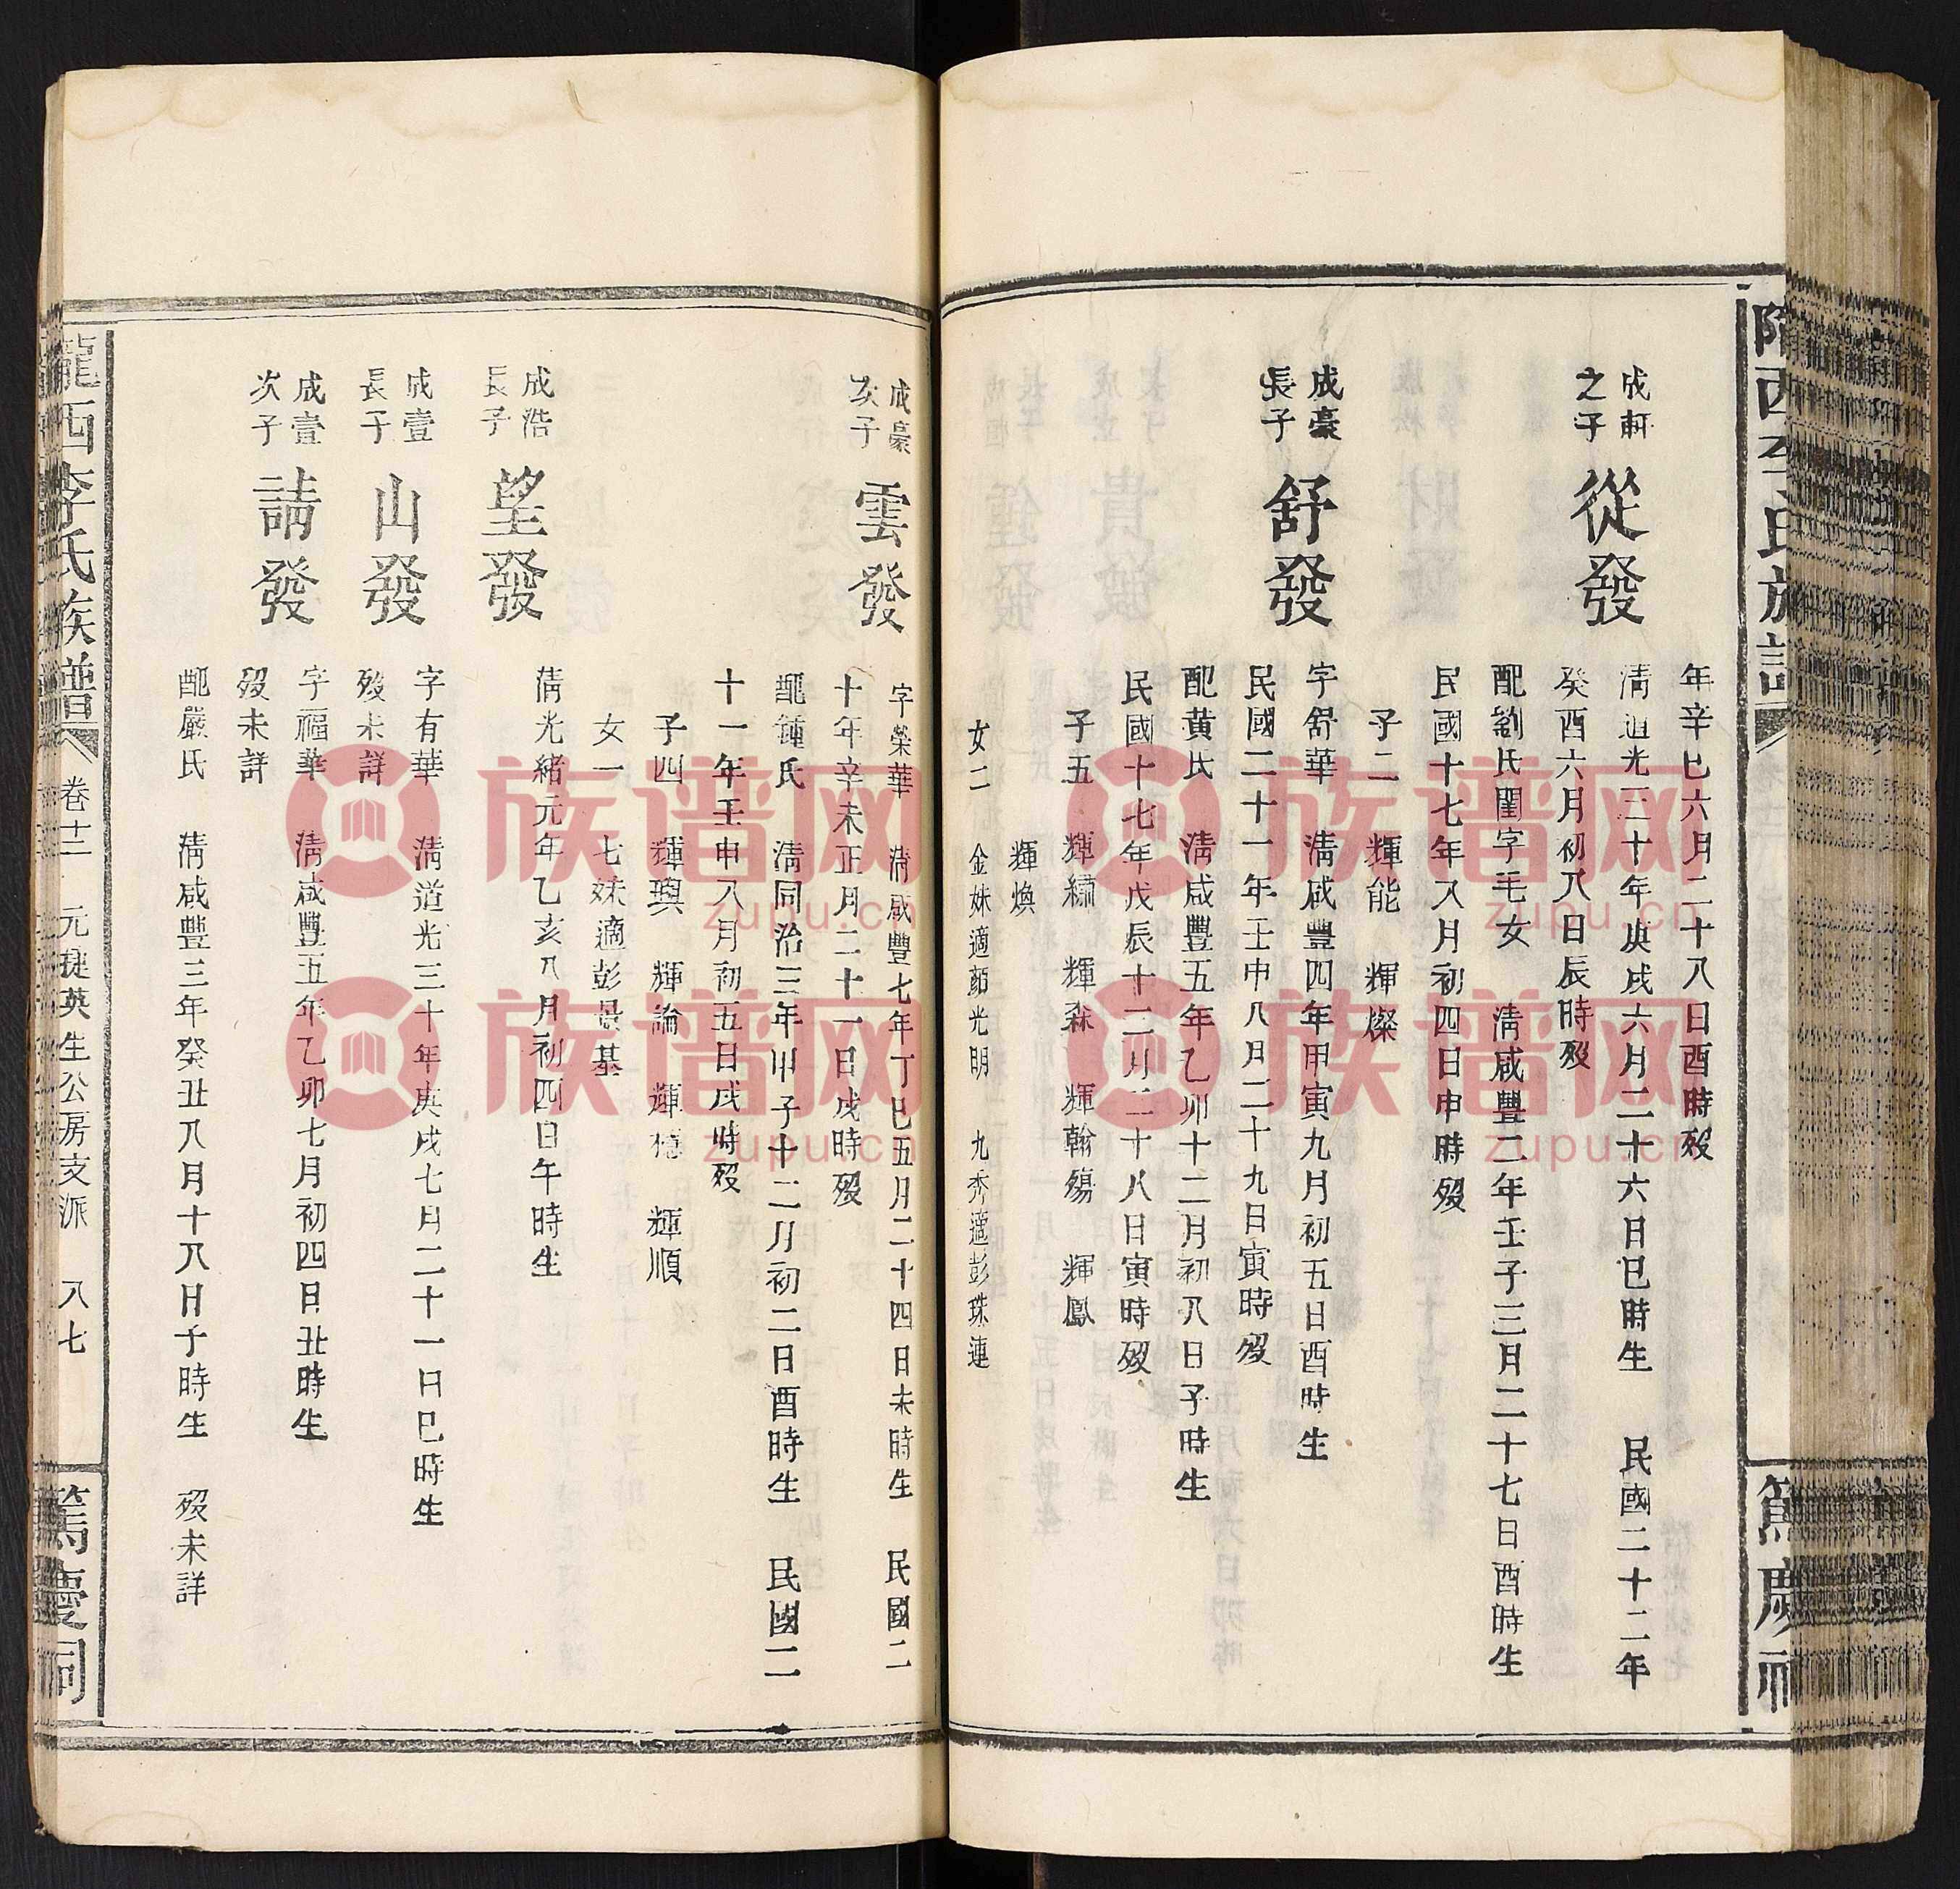 隴西李氏族譜
篤慶祠
年辛巳六月二十八日酉時歿
成軒之子 從發
清道光三十年庚戌六月二十六日巳時生 民國二十二年
癸酉六月初八日辰時歿
配劉氏閨字毛女 清咸豐二年壬子三月二十七日酉時生
民國十七年八月初四日申時歿
子二 輝能 輝燦
成豪長子 舒發
字舒華 清咸豐四年甲寅九月初五日酉時生
民國二十一年壬申八月二十九日寅時歿
配黃氏 清咸豐五年乙卯十二月初八日子時生
民國十七年戊辰十二月二十八日寅時歿
子五 輝繡 輝森 輝翰殤 輝鳳
輝煥
女二 金妹適顏光明 九秀適彭珠連
成豪次子 雲發
字榮華 清咸豐七年丁巳五月二十四日未時生 民國二
十年辛未正月二十一日戌時歿
配鍾氏 清同治三年甲子十二月初二日酉時生 民國二
十一年壬申八月初五日戌時歿
子四 輝興 輝論 輝 輝順
女一 七妹適彭景基
成浩長子 望發
清光緒元年乙亥八月初四日午時生
成壹長子 山發
字有華 清道光三十年庚戌七月二十一日巳時生
歿未詳
成壹次子 請發
字福華 清咸豐五年乙卯七月初四日丑時生
歿未詳
配嚴氏 清咸豐三年癸丑八月十八日子時生 歿未詳
隴西李氏族譜 卷十二 元捷英生公房支派 八七 篤慶祠
族谱网
zupu.cn
族谱网
zupu.cn
族谱网
zupu.cn
族谱网
zupu.cn